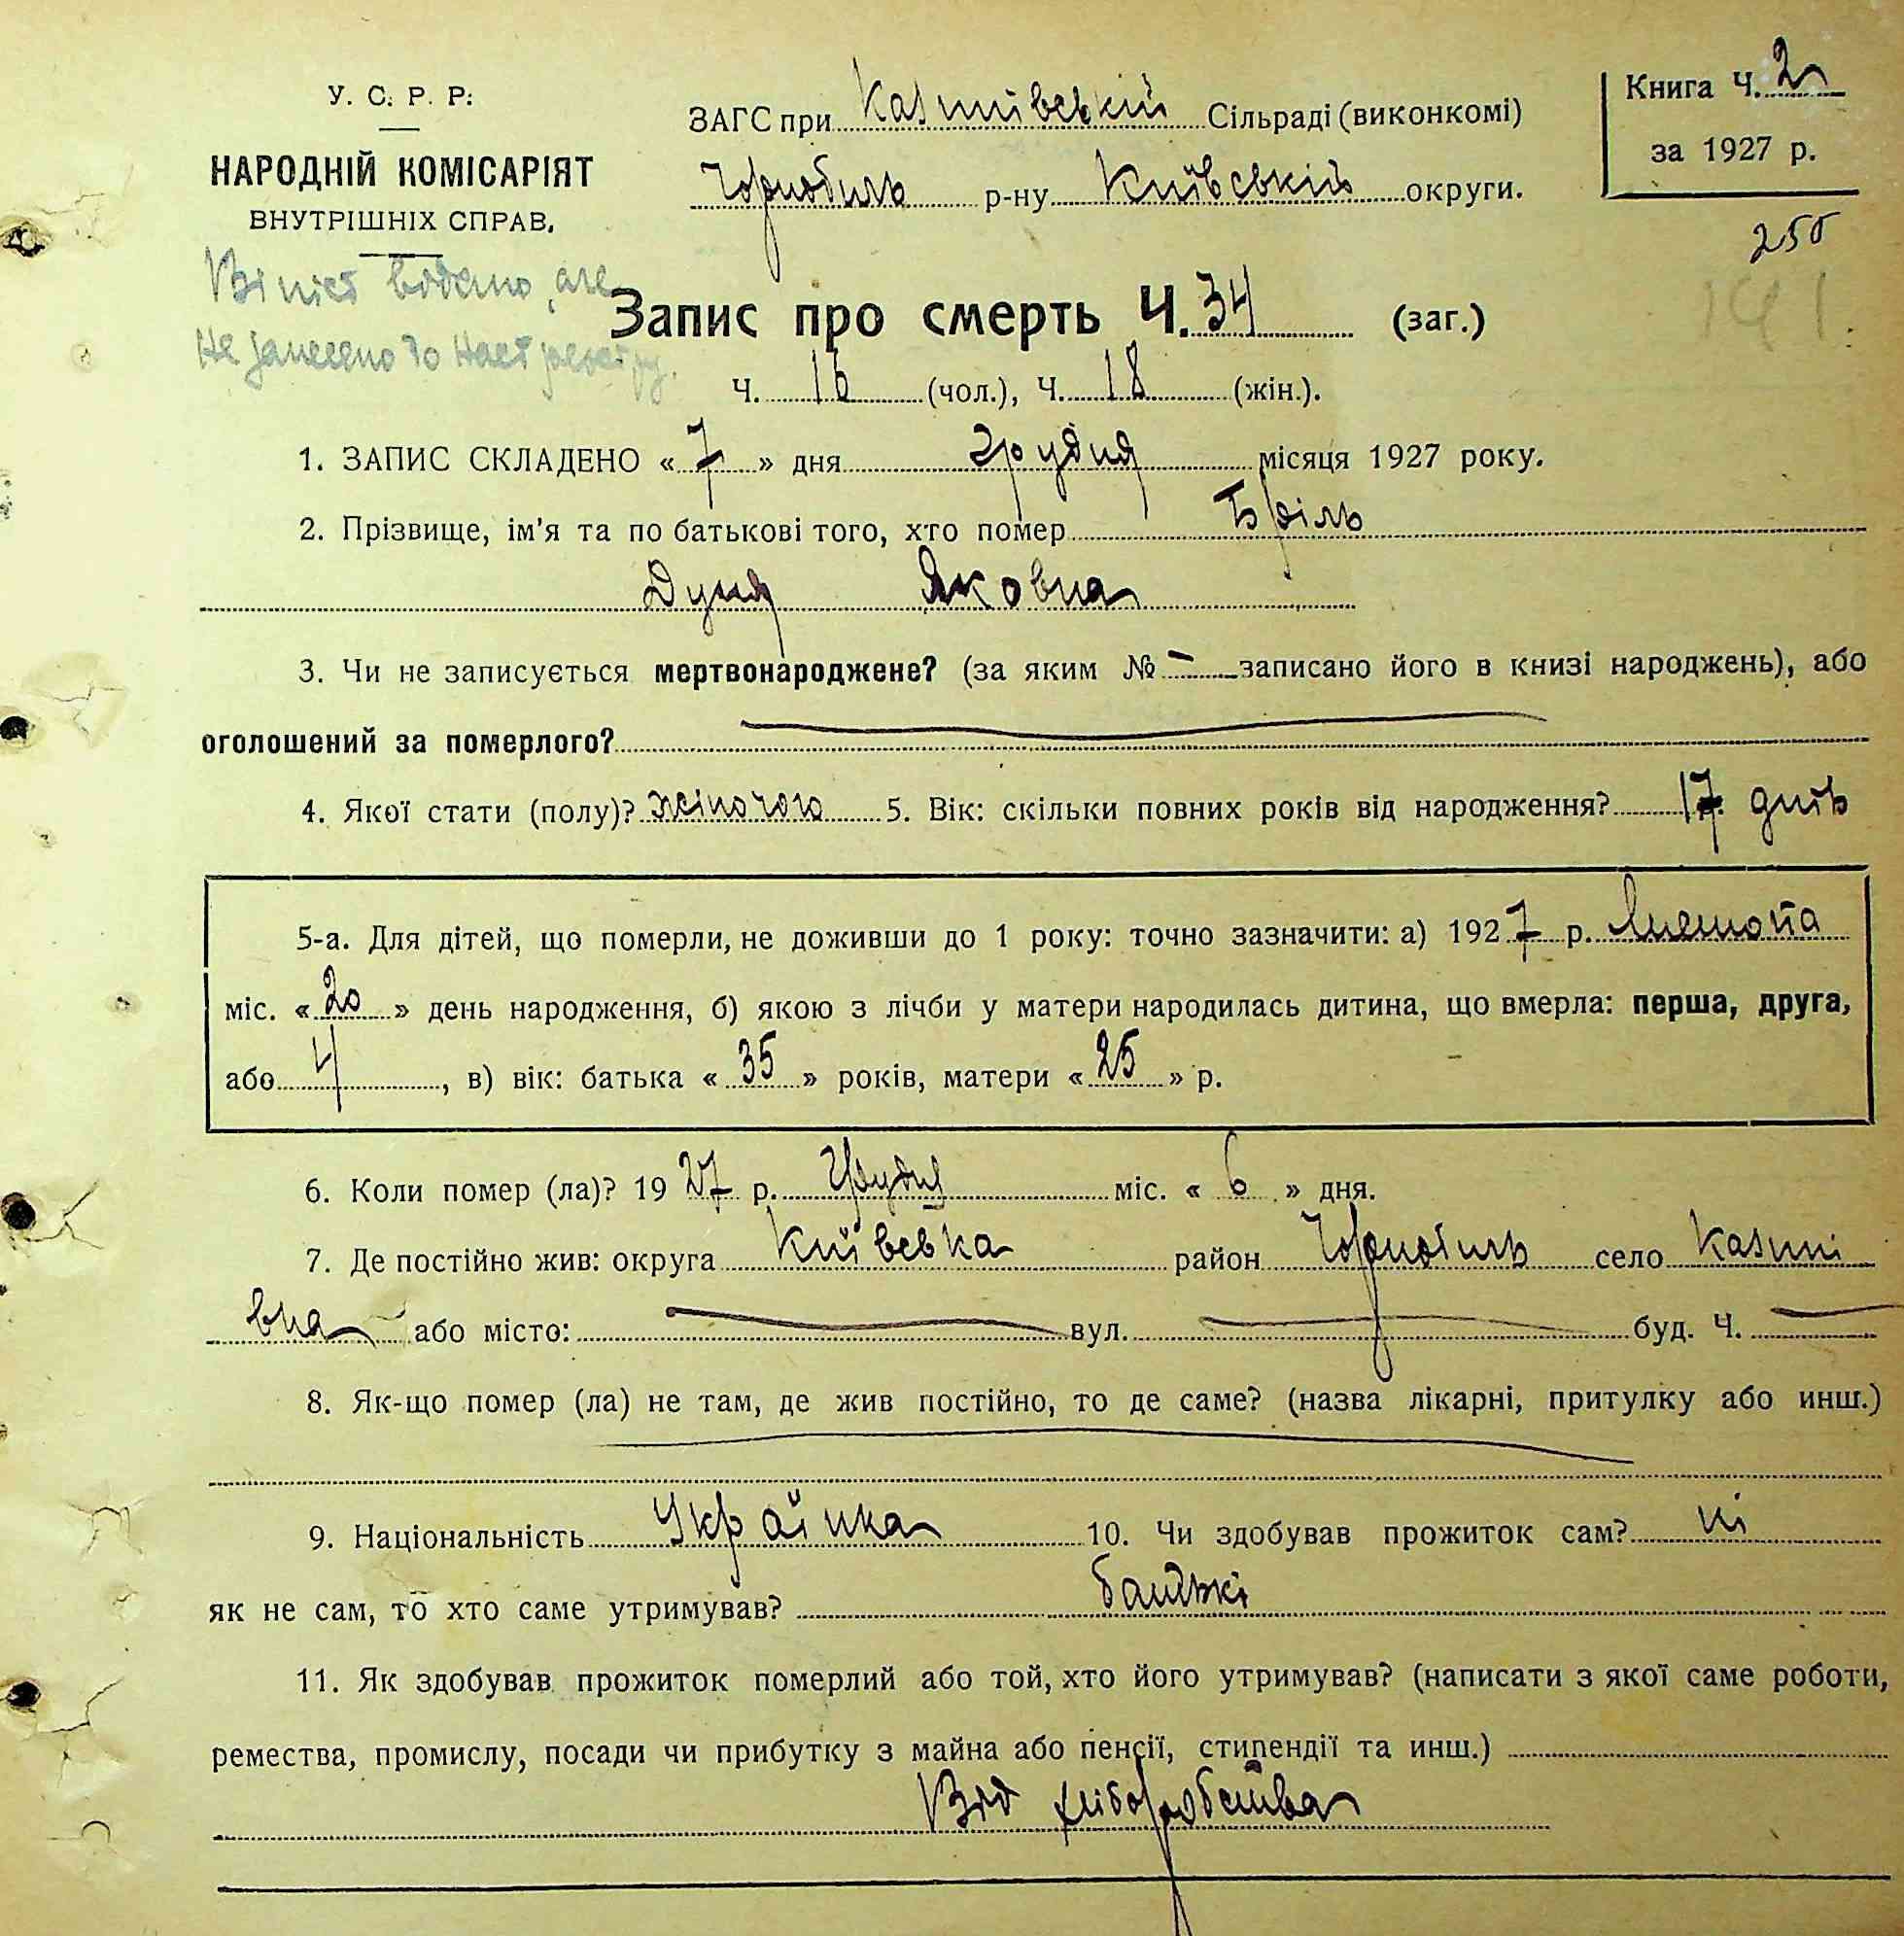 У. С. Р. Р.
НАРОДНІЙ КОМІСАРІЯТ
ВНУТРІШНІХ СПРАВ.
ЗАГС при Казмівській Сільраді (виконкомі)
Чорнобиль р-ну Київській округи.
Книга Ч. 2
за 1927 р.
250
141
Запис про смерть Ч. 34 (заг.)
не занесено до
Ч. 16 (чол.), Ч. 18 (жін.).
1. ЗАПИС СКЛАДЕНО « 7 » дня грудня місяця 1927 року.
2. Прізвище, ім'я та по батькові того, хто помер Бріль
Дуня Яковна
3. Чи не записується мертвонароджене? (за яким № – записано його в книзі народжень), або
оголошений за померлого?
4. Якої стати (полу)? жіночого 5. Вік: скільки повних років від народження? 17 днів
5-а. Для дітей, що померли, не доживши до 1 року: точно зазначити: а) 1927 р. Листопа
міс. « 20 » день народження, б) якою з лічби у матери народилась дитина, що вмерла: перша, друга,
або 4, в) вік: батька « 35 » років, матери « 25 » р.
6. Коли помер (ла)? 1927 р. Грудня міс. « 6 » дня.
7. Де постійно жив: округа Київська район Чорнобиль село Казмі
вка або місто: вул. буд. Ч.
8. Як-що помер (ла) не там, де жив постійно, то де саме? (назва лікарні, притулку або инш.)
9. Національність Українка 10. Чи здобував прожиток сам? ні
як не сам, то хто саме утримував? батькі
11. Як здобував прожиток померлий або той, хто його утримував? (написати з якої саме роботи,
ремества, промислу, посади чи прибутку з майна або пенсії, стипендії та инш.)
Від хліборобства